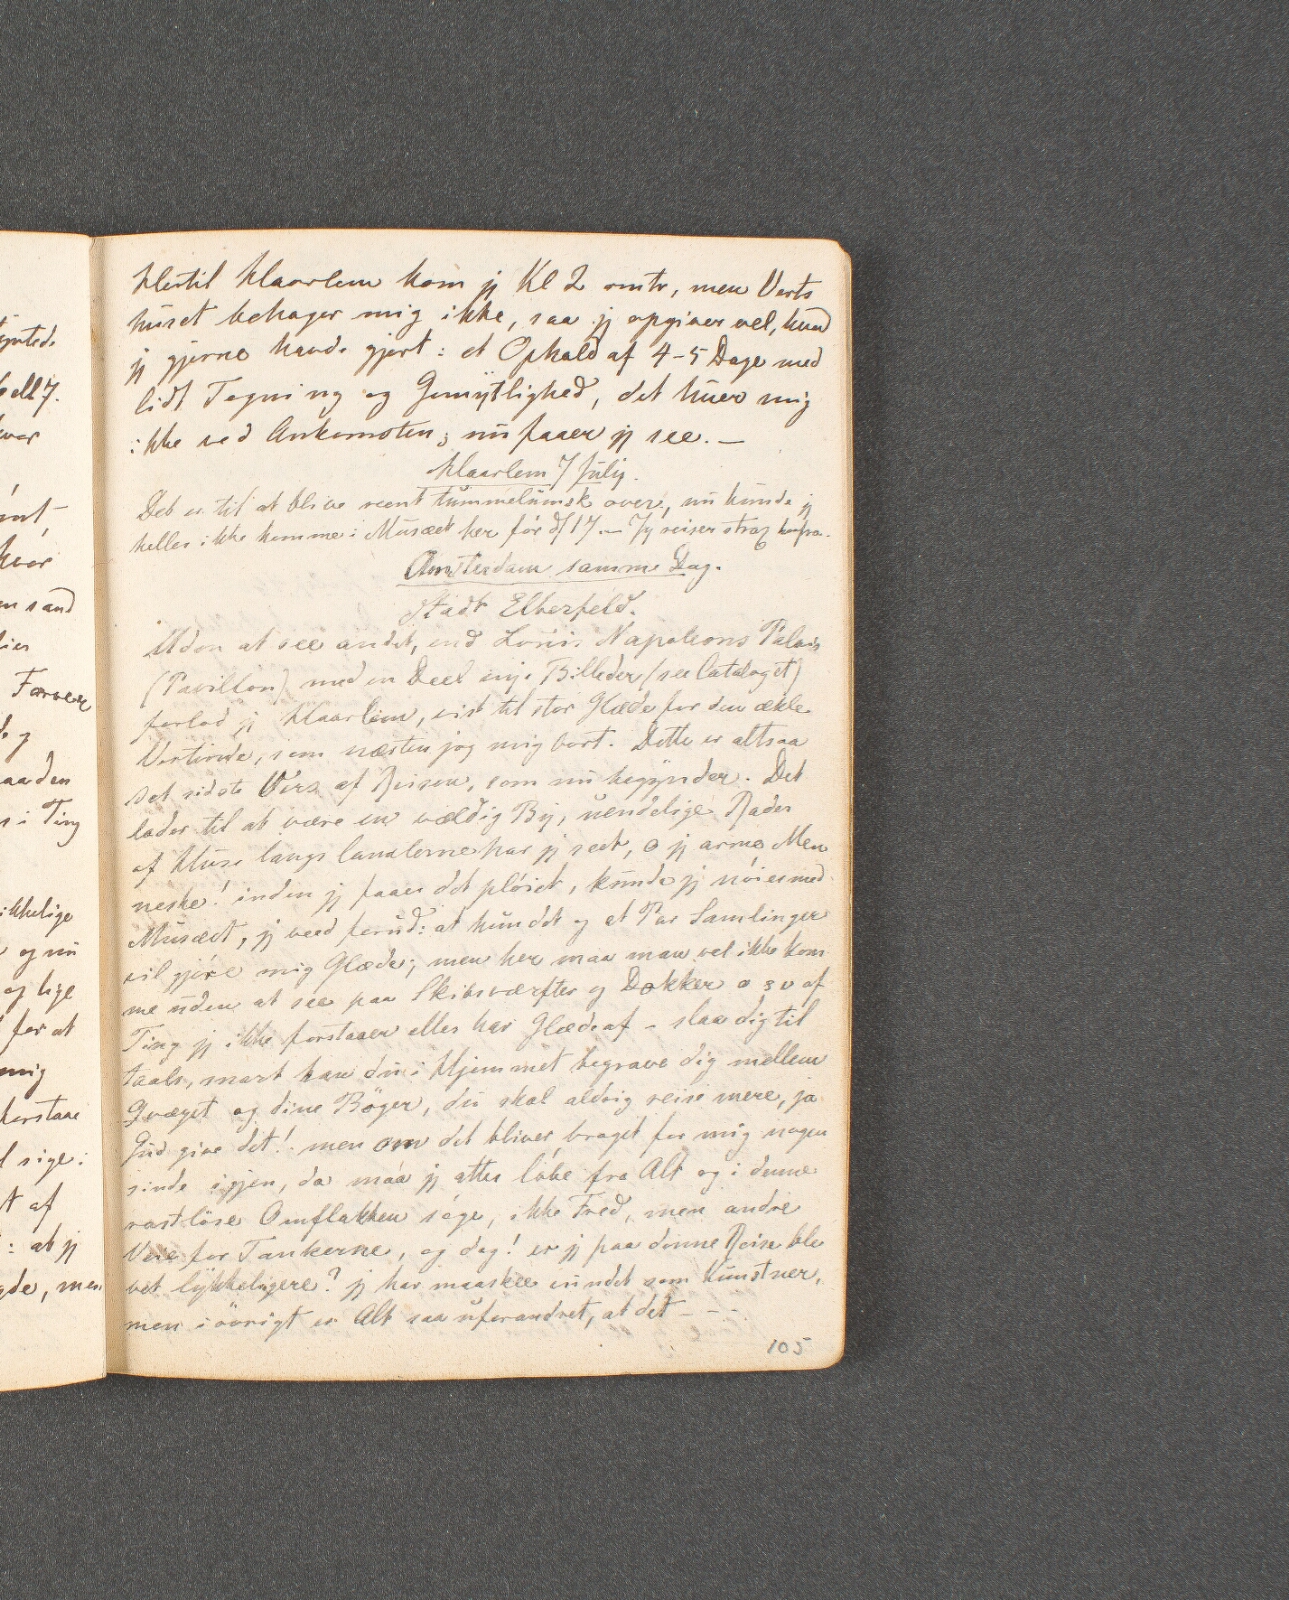 Hertil Haarlem kom jg Kl 2 omtr, men Verts
huset behager mig ikke, saa jg opgiver vel, hvad
jg gjerne havde gjort: et Ophold af 4-5 Dage med
lidt Tegning og Gemytlighed, det huer mig
ikke ved Ankomsten; nu faaer jg see. —
Haarlem 7 July.
Det er til at blive reent tummelumsk over, nu kunde jg
heller ikke komme i Musæet her før d/17 — Jg reiser strax herfra.
Amsterdam samme Dag.
Stadt Elberfeld.
Uden at see andet, end Louis Napoleons Palais
(Pavillon) med en Deel nye Billeder (see Cataloget)
forlod jg Haarlem, vist til stor Glæde for den ækle
Vertinde, som næsten jog mig bort. Dette er altsaa
det sidste Vers af Reisen, som nu begynder. Det
lader til at være en vældig By, uendelige Rader
af Huse langs Canalerne har jg seet, o jg arme Men
neske! inden jg faaer det pløiet, kunde jg nöies med
Musæet, jg veed forud: at kun det og et Par Samlinger
vil gjöre mig Glæde; men her maa man vel ikke kom
me uden at see paa Skibsværfter og Dokker o s v af
Ting jg ikke forstaaer eller har Glæde af – slaa dig til
taals, snart kan du i Hjemmet begrave dig mellem
Qvæget og dine Böger, du skal aldrig reise mere, ja
Gud give det! men om det bliver braget for mig nogen
sinde igjen, da maa jg atter löbe fra Alt og i denne
rastlöse Omflakken söge, ikke Fred, men andre
Veie for Tankerne, og dog! er jg paa denne Reise ble
vet lykkeligere? jg har maaskee vundet som Kunstner,
men i övrigt er Alt saa uforandret, at det - - -
105
Farver
og
aaden
i Ting
og nu
og lige
for at
mig
sige:
af
: at jg
men